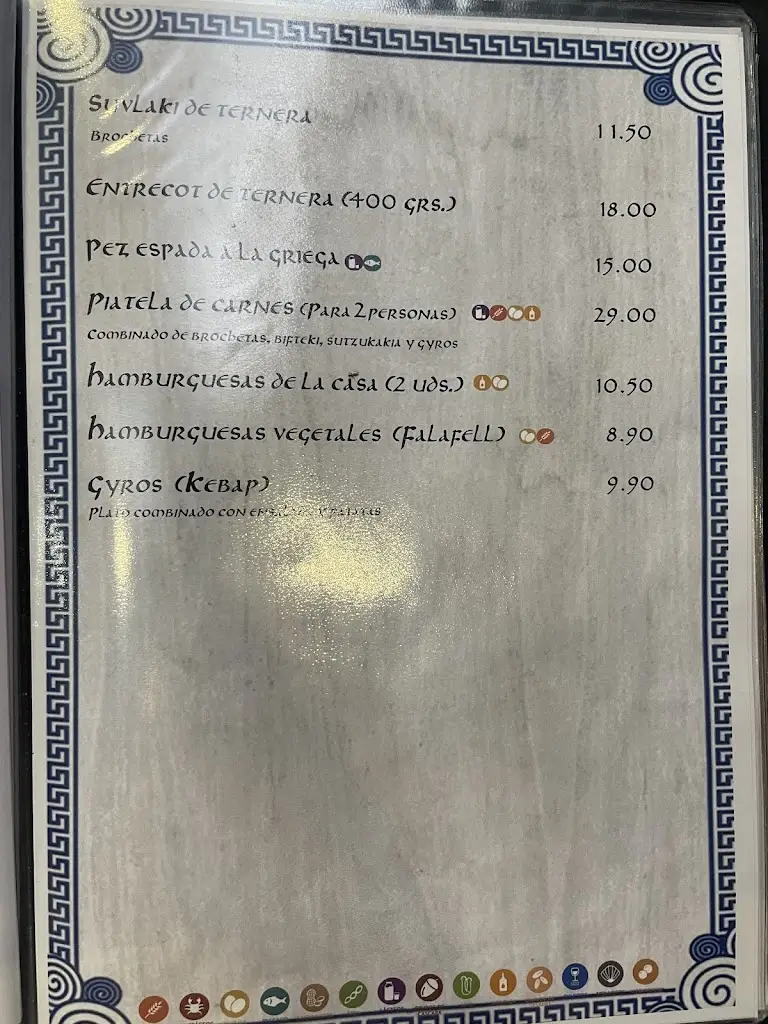 Suvlaki de ternera
11.50
Brochetas
Entrecot de ternera (400 grs.)
18.00
Pez espada a la griega
15.00
Piatela de carnes (para 2 personas)
29.00
Combinado de brochetas, bifteki, sutzukakia y gyros
Hamburguesas de la casa (2 uds.)
10.50
Hamburguesas vegetales (Falafell)
8.90
Gyros (Kebap)
9.90
Plato combinado con ensalada y patatas